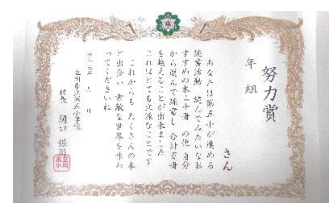 努力賞
年 組
さん
あなたは第五小が進める
読書活動 読んでみたいなお
すすめの本二十冊の他自分
から選んで読書し合計百冊
を越えることが出来ました
これはとても立派なことです
これからもたくさんの本
と出会い素敵な世界を味わ
ってくださいね
立川市立第五小学校
校長